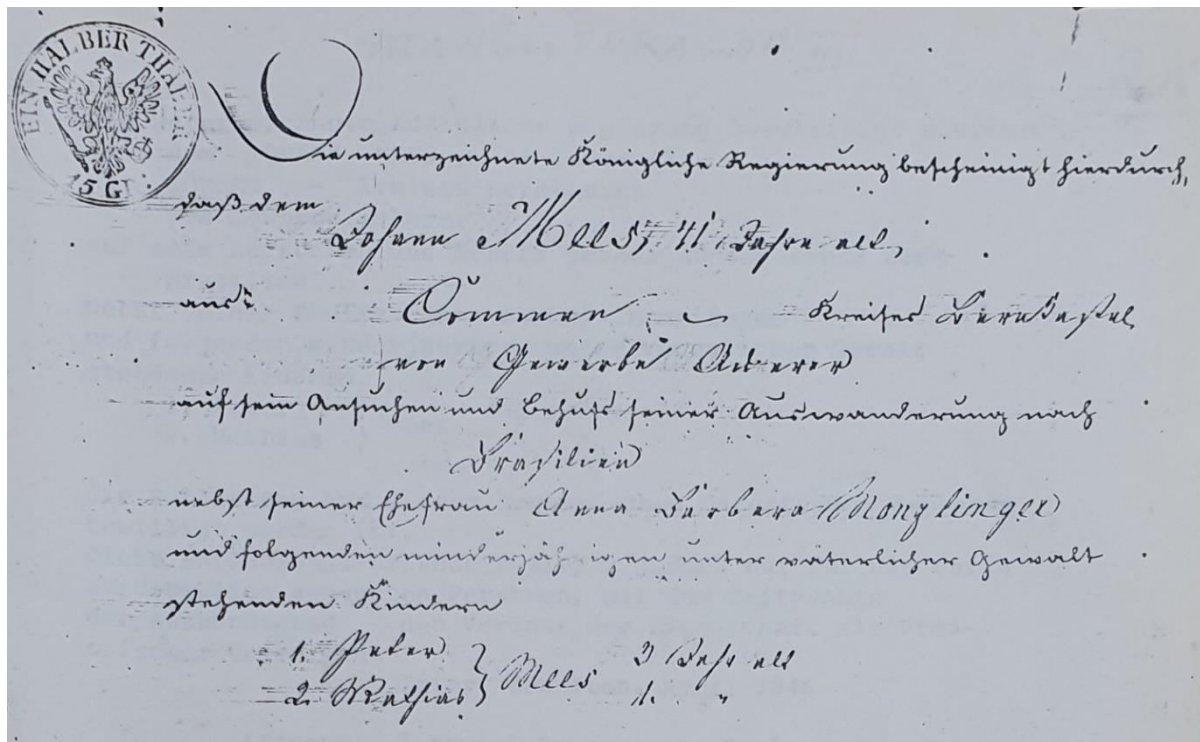 EIN HALBER THALER
15 Gr.
Die unterzeichnete Königliche Regierung bescheinigt hierdurch,
daß dem
Johann Mees, 41 Jahre alt,
aus Commen, Kreises Bernkastel
von Gewerbe Ackerer
auf sein Ansuchen und behufs seiner Auswanderung nach
Brasilien
nebst seiner Ehefrau Anna Barbara Monzlinger
und folgenden minderjährigen unter väterlicher Gewalt
stehenden Kindern
1. Peter } Mees 3 Jahr alt
2. Mathias } 1. "